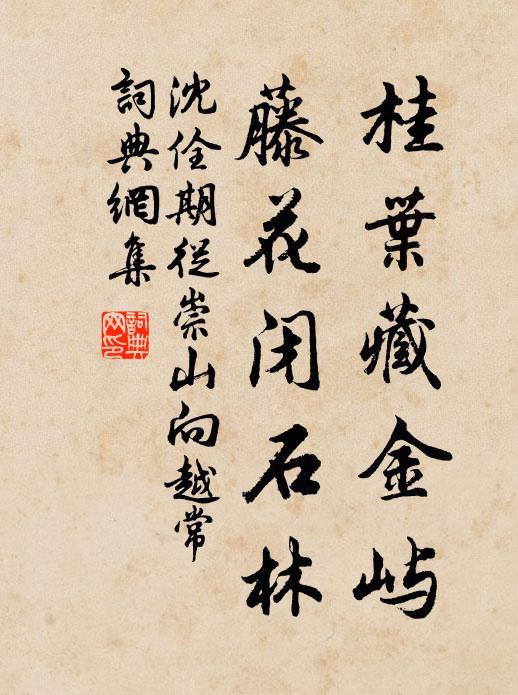 桂葉藏金嶼
藤花閉石林
沈佺期從崇山向越常
詞典網集
詞典網印